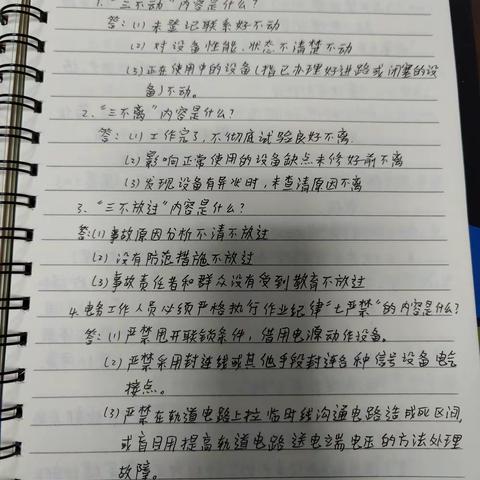 1. "三不动"内容是什么?
答:(1)未登记联系好不动
(2)对设备性能、状态不清楚不动
(3)正在使用中的设备(指已办理好进路或闭塞的设
备)不动。
2. "三不离"内容是什么?
答:(1)工作完了,不彻底试验良好不离.
(2)影响正常使用的设备缺点未修好前不离
(3)发现设备有异状时,未查清原因不离
3、"三不放过"内容是什么?
答:(1)事故原因分析不清不放过
(2)没有防范措施不放过
(3)事故责任者和群众没有受到教育不放过
4.电务工作人员必须严格执行作业纪律"七严禁"的内容是什么?
答:(1)严禁甩开联锁条件,借用电源动作设备。
(2)严禁采用封连线或其他手段封连各种信号设备电气
接点。
(3)严禁在轨道电路上拉临时线沟通电路造成死区间,
或盲目用提高轨道电路送电端电压的方法处理
故障。